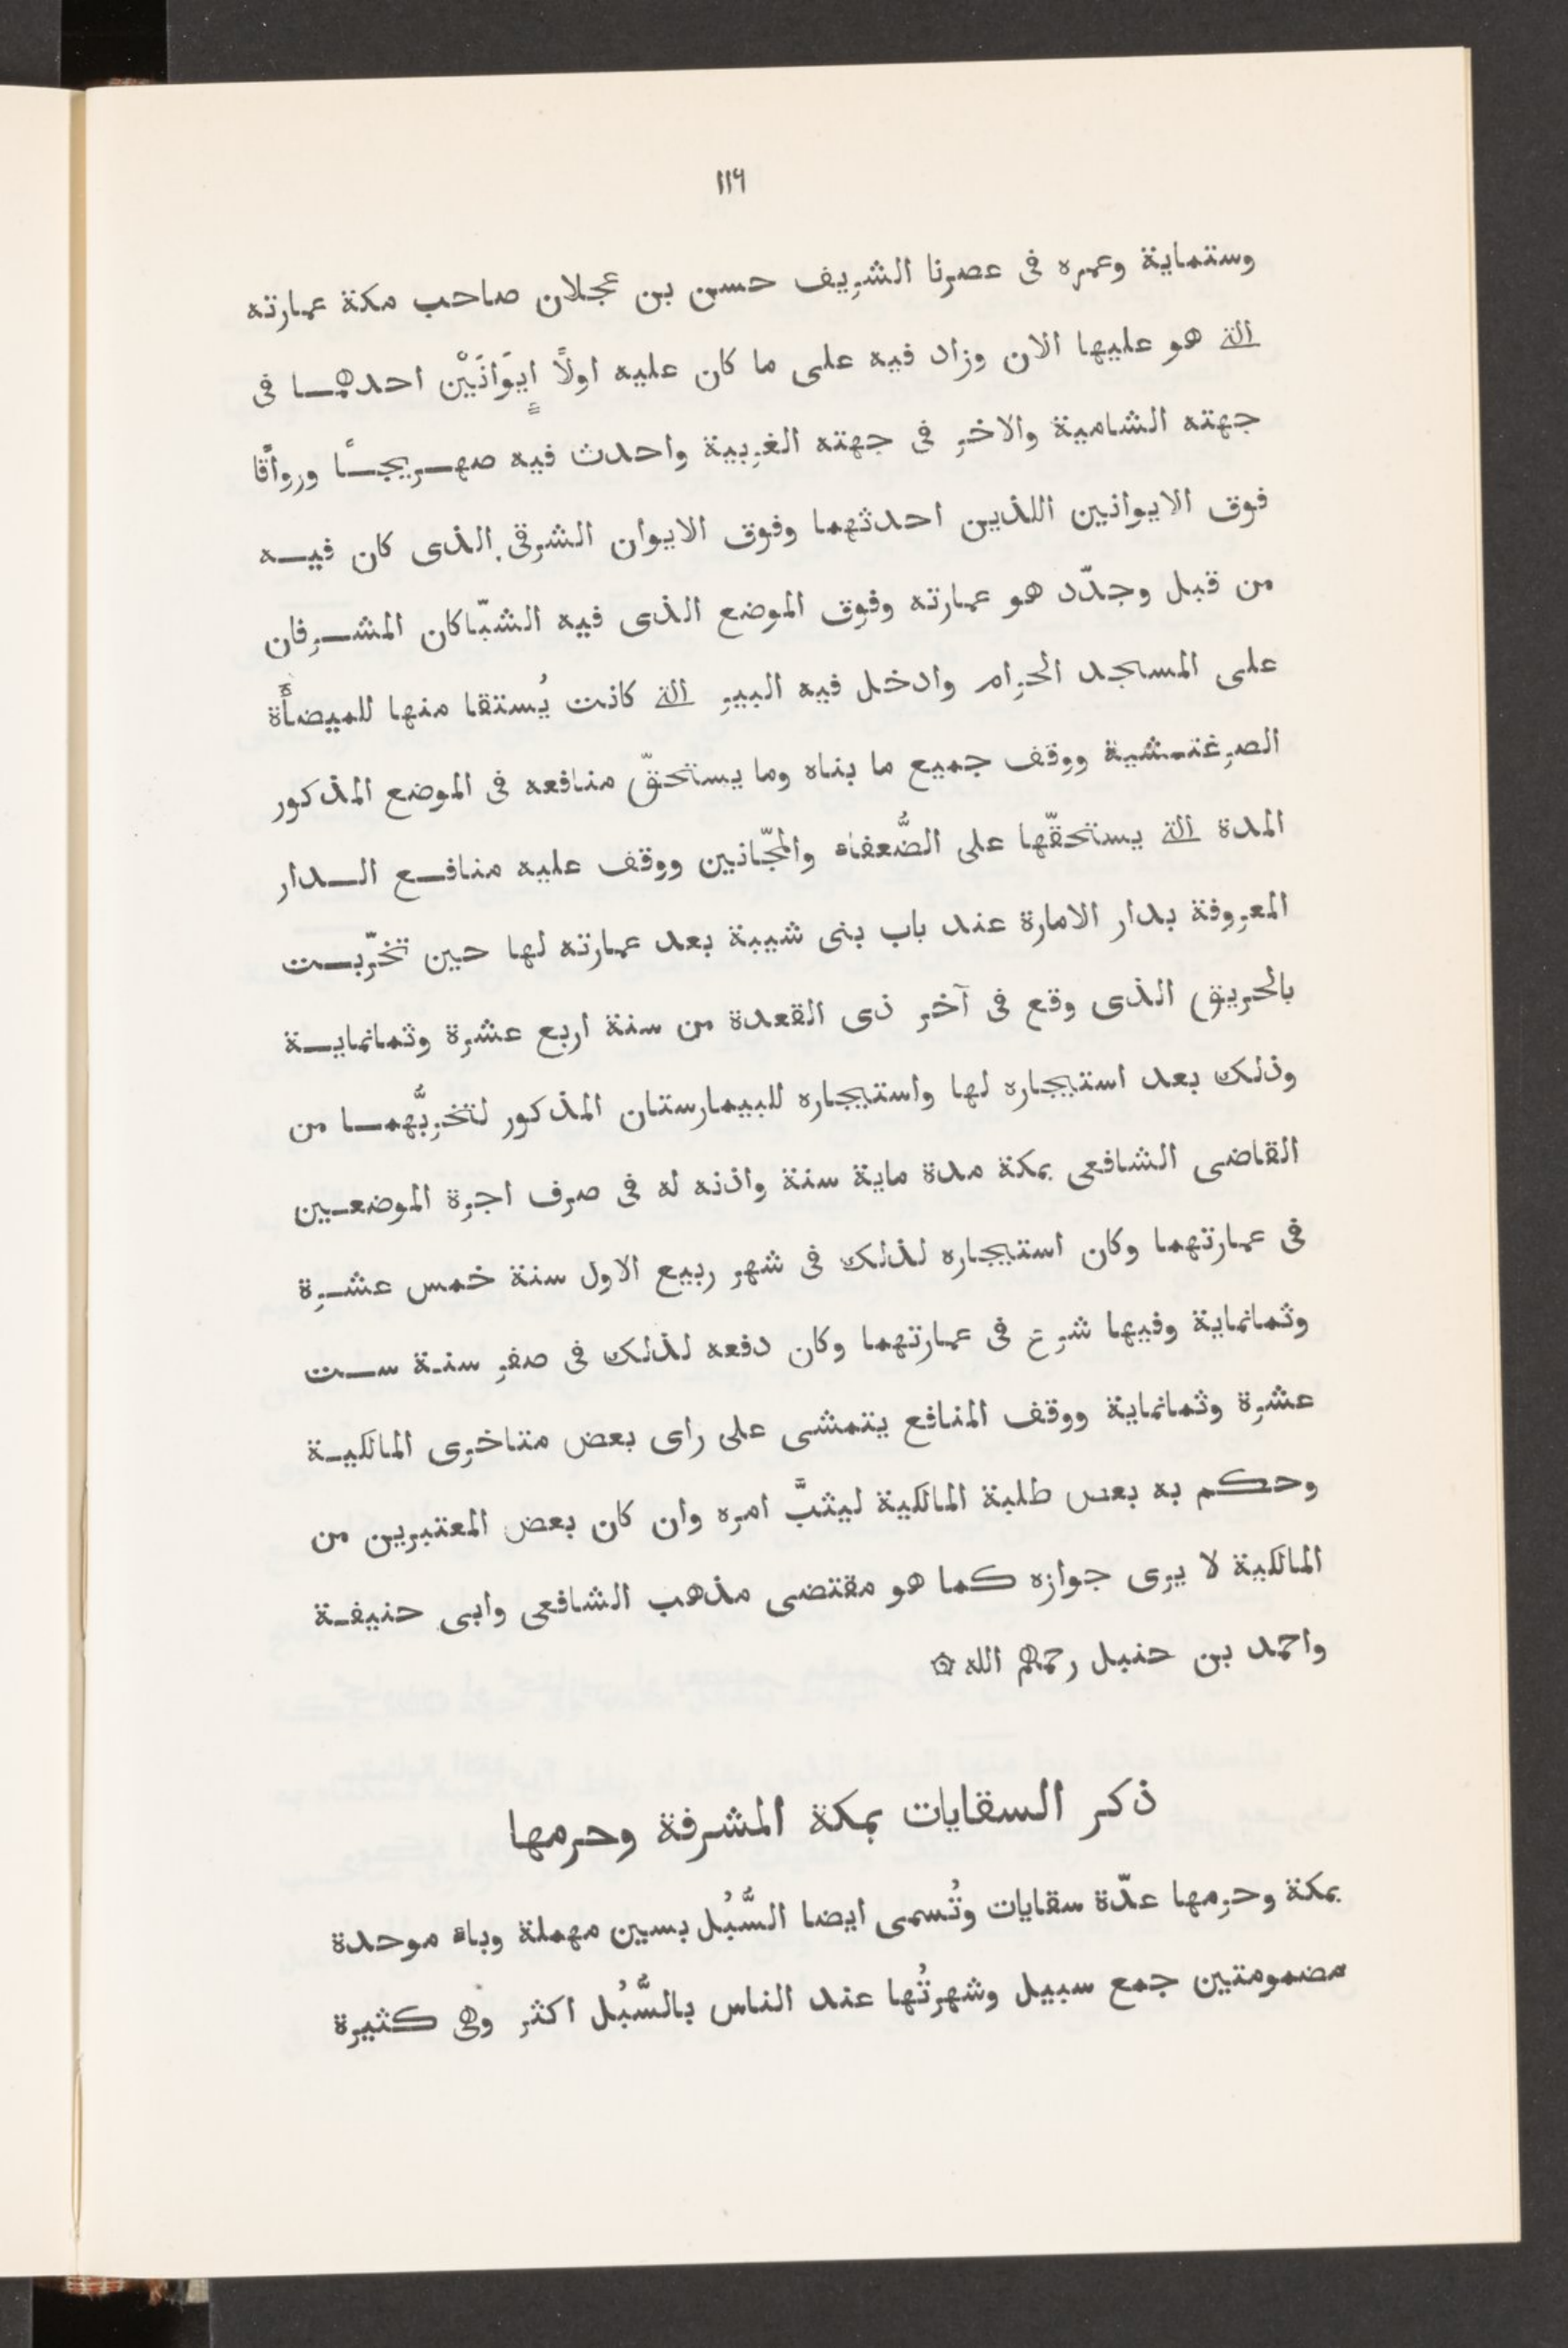 ١١٩
وستماية وعمره فى عصرنا الشريف حسن بن عجلان صاحب مكة عمارته
التى هو عليها الان وزاد فيه على ما كان عليه اولًا اِيوَانَيْن احدهما فى
جهته الشامية والاخر فى جهته الغربية واحدث فيه صهريجًا ورواقًا
فوق الايوانين اللذين احدثهما وفوق الايوان الشرقى الذى كان فيه
من قبل وجدّد هو عمارته وفوق الموضع الذى فيه الشبّاكان المشرفان
على المسجد الحرام وادخل فيه البير التى كانت يُستقا منها للميضأة
الصرغتمشية ووقف جميع ما بناه وما يستحقّ منافعه فى الموضع المذكور
المدة التى يستحقّها على الضُّعفاء والمجّانين ووقف عليه منافع الدار
المعروفة بدار الامارة عند باب بنى شيبة بعد عمارته لها حين تخرّبت
بالحريق الذى وقع فى آخر ذى القعدة من سنة اربع عشرة وثمانماية
وذلك بعد استيجاره لها واستيجاره للبيمارستان المذكور لتخرُّبهما من
القاضى الشافعى بمكة مدة ماية سنة واذنه له فى صرف اجرة الموضعين
فى عمارتهما وكان استيجاره لذلك فى شهر ربيع الاول سنة خمس عشرة
وثمانماية وفيها شرع فى عمارتهما وكان دفعه لذلك فى صفر سنة ست
عشرة وثمانماية ووقف المنافع يتمشى على راى بعض متاخرى المالكية
وحكم به بعض طلبة المالكية ليثبَّ امره وان كان بعض المعتبرين من
المالكية لا يرى جوازه كما هو مقتضى مذهب الشافعى وابى حنيفة
واحمد بن حنبل رحمهم الله ۞
ذكر السقايات بمكة المشرفة وحرمها
بمكة وحرمها عدّة سقايات وتُسمى ايضا السُّبُل بسين مهملة وباء موحدة
مضمومتين جمع سبيل وشهرتُها عند الناس بالسُّبُل اكثر وهى كثيرة